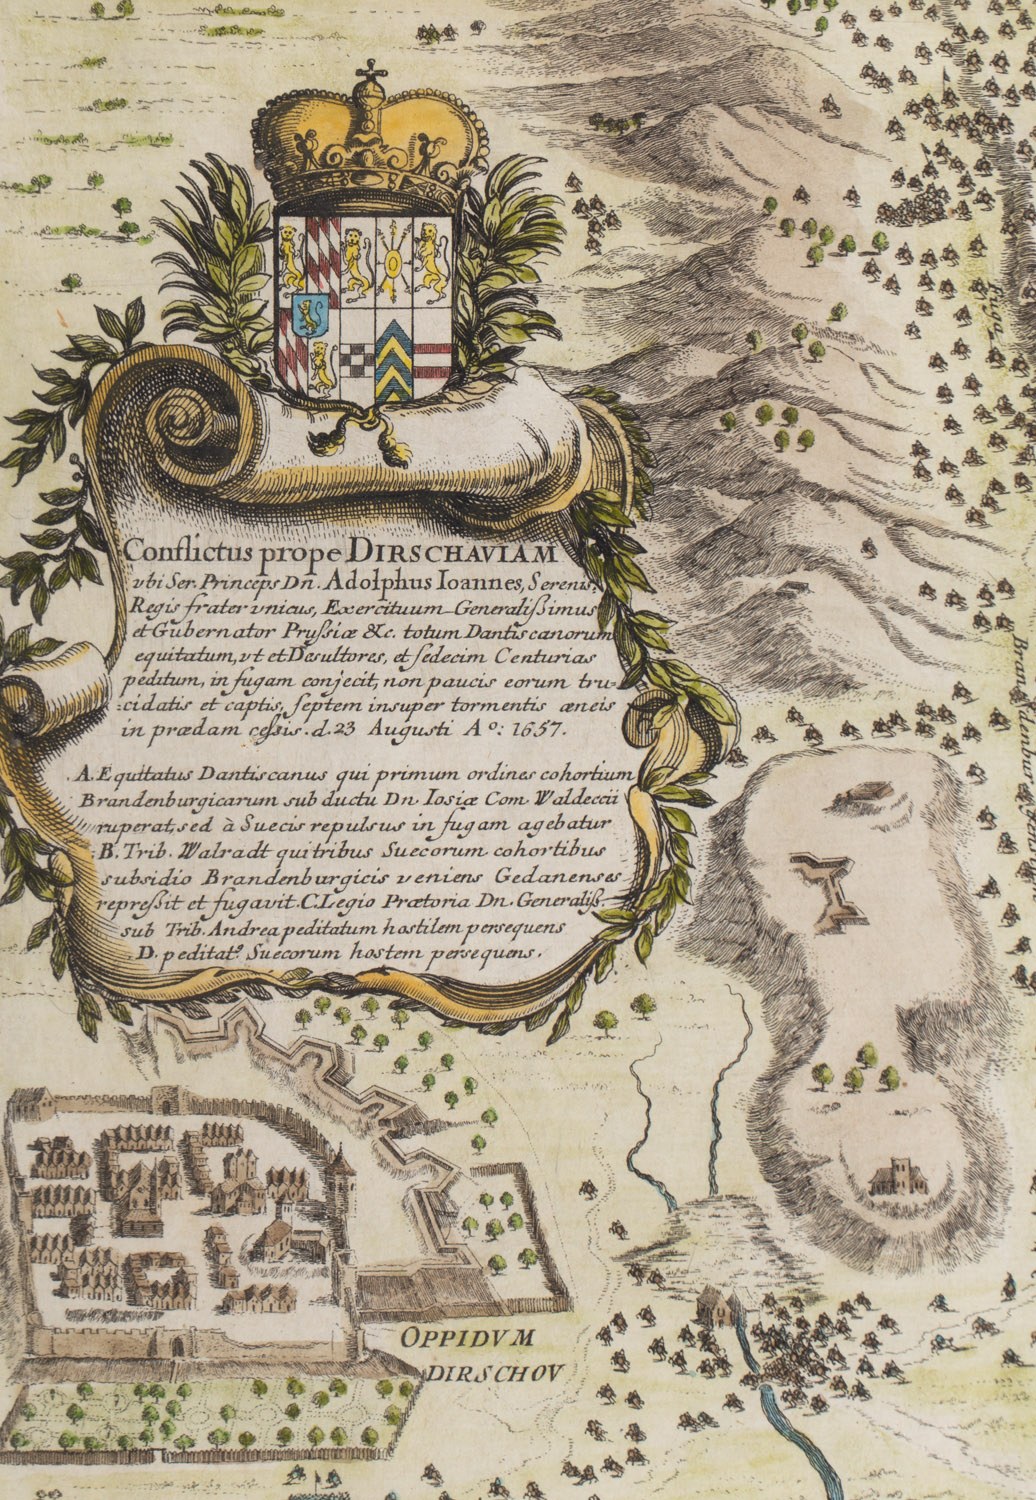 Conflictus prope DIRSCHAVIAM
vbi Ser. Princeps Dn. Adolphus Ioannes, Sereniss.
Regis frater vnicus, Exercituum Generalißimus
et Gubernator Prußiæ &c. totum Dantiscanorum
equitatum, vt et Desultores, et sedecim Centurias
peditum, in fugam conjecit, non paucis eorum tru-
cidatis et captis, septem insuper tormentis æneis
in prædam cessis. d. 23 Augusti Aº: 1657.
A. Equitatus Dantiscanus qui primum ordines cohortium
Brandenburgicarum sub ductu Dn. Iosiæ Com. Waldeccii
ruperat, sed à Suecis repulsus in fugam agebatur
B. Trib. Walradt qui tribus Suecorum cohortibus
subsidio Brandenburgicis veniens Gedanenses
repreßit et fugavit. C. Legio Prætoria Dn. Generaliß.
sub Trib. Andrea peditatum hostilem persequens
D. peditatº Suecorum hostem persequens.
Fuga
Brandenburg
OPPIDVM
DIRSCHOV